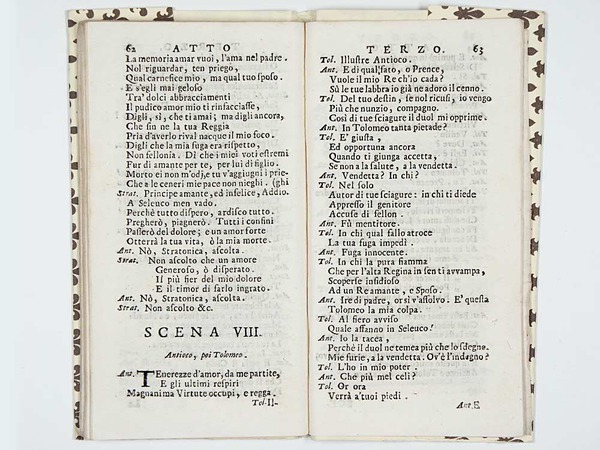 62 ATTO
La memoria amar vuoi, l'ama nel padre.
Nel riguardar, ten priego,
Qual carnefice mio, ma qual tuo sposo.
E s'egli mai geloso
Tra' dolci abbracciamenti
Il pudico amor mio ti rinfacciasse,
Digli, sì, che ti amai; ma digli ancora,
Che fin ne la tua Reggia
Pria d'averlo rival nacque il mio foco.
Digli che la mia fuga era rispetto,
Non fellonia. Dì che i miei voti estremi
Fur di amante per te, per lui di figlio.
Morto ei non m'odj, e tu v'aggiugni i prie-
Che a le ceneri mie pace non nieghi. (ghi
Strat. Principe amante, ed infelice, Addio.
A Seleuco men vado.
Perchè tutto dispero, ardisco tutto.
Pregherò, piagnerò. Tutti i confini
Passerò del dolore; e un amor forte
Otterrà la tua vita, ò la mia morte.
Ant. Nò, Stratonica, ascolta.
Strat. Non ascolto che un amore
Generoso, ò disperato.
Il più fier del mio dolore
E il timor di farlo ingrato.
Ant. Nò, Stratonica, ascolta.
Strat. Non ascolto &c.
SCENA VIII.
Antioco, poi Tolomeo.
Ant. Tenerezze d'amor, da me partite,
E gli ultimi respiri
Magnanima Virtute occupi, e regga.
Tol. Il-
TERZO. 63
Tol. Illustre Antioco.
Ant. E di qual fato, o Prence,
Vuole il mio Re ch'io cada?
Sù le tue labbra io già ne adoro il cenno.
Tol. Del tuo destin, se nol ricusi, io vengo
Più che nunzio, compagno.
Ant. Così di tue sciagure il duol mi opprime.
Ant. In Tolomeo tanta pietade?
Tol. E' giusta,
Ed opportuna ancora
Quando ti giunga accetta,
Se non a la salute, a la vendetta.
Ant. Vendetta? In chi?
Tol. Nel solo
Autor di tue sciagure: in chi ti diede
Appresso il genitore
Accuse di fellon.
Ant. Fù mentitore.
Tol. In chi qual fallo atroce
La tua fuga impedì.
Ant. Fuga innocente.
Tol. In chi la pura fiamma
Che per l'alta Regina in sen ti avvampa,
Scoperse insidioso
Ad un Re amante, e Sposo.
Ant. Ire di padre, or si v'assolvo. E' questa
Tolomeo la mia colpa.
Tol. Al fiero avviso
Quale affanno in Seleuco!
Ant. Io la tacea,
Perchè il duol ne temea più che lo sdegno.
Mie furie, a la vendetta. Ov'è l'indegno?
Tol. L'ho in mio poter.
Ant. Che più mel celi?
Tol. Or ora
Verrà a'tuoi piedi.
Ant. E